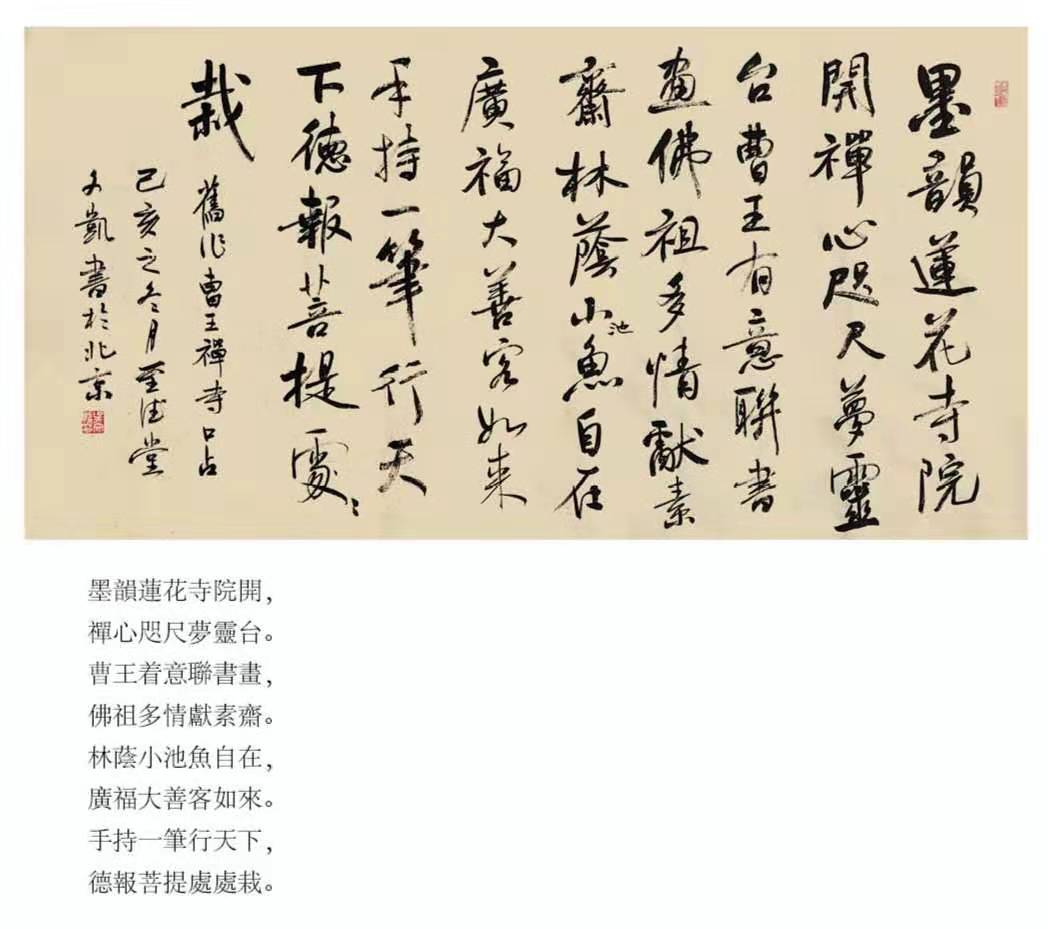 墨韻蓮花寺院
開禪心咫尺夢靈
台曹王有意聯書
畫佛祖多情獻素
齋林蔭小池魚自在
廣福大善客如来
手持一筆行天
下德報菩提處〻
栽
舊作曹王禪寺口占
己亥之冬月至德堂
凱書於北京
墨韻蓮花寺院開，
禪心咫尺夢靈台。
曹王着意聯書畫，
佛祖多情獻素齋。
林蔭小池魚自在，
廣福大善客如來。
手持一筆行天下，
德報菩提處處栽。